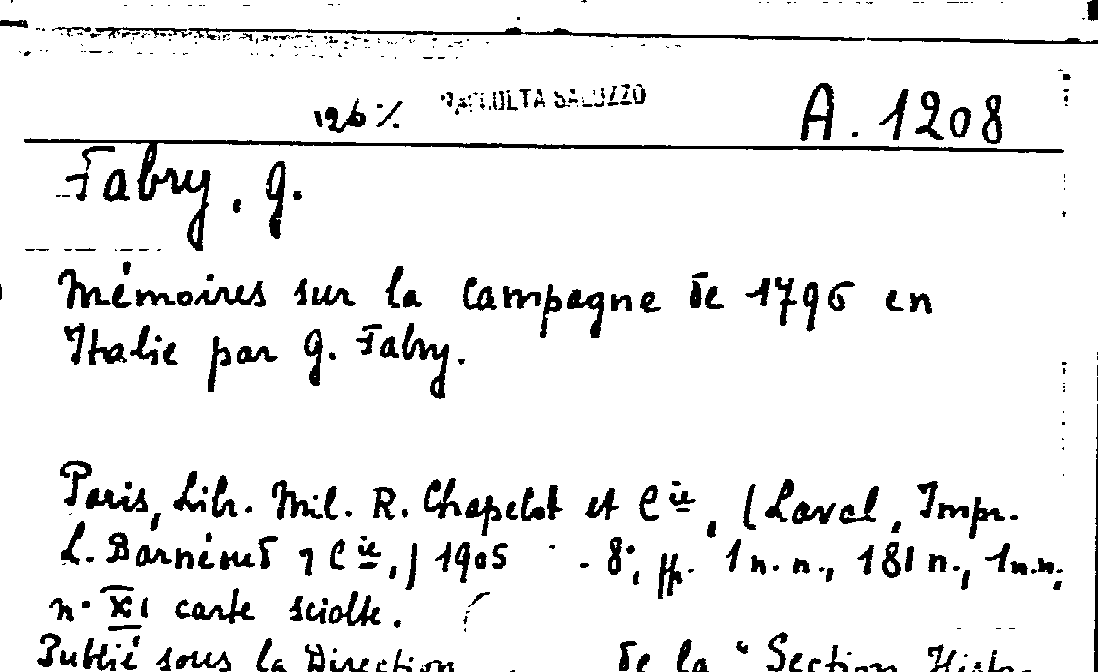 126 %. RACCOLTA SALUZZO A. 1208
Fabry. G.
Mémoires sur la Campagne de 1796 en
Italie par G. Fabry.
Paris, Libr. Mil. R. Chapelot et Cie, (Laval, Impr.
L. Barnéoud 7 Cie,) 1905 - 8°, pp. 1 n. n., 181 n., 1 n.n;
n. XI carte sciolte.
Publié sous la Direction de la "Section Histo-